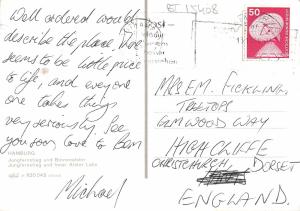 Well ordered would
describe the place, life
seems to be little price
to life, and everyone
one takes things
very seriously. See
you soon, love to Ben
Michael
HAMBURG
Jungfernstieg und Binnenalster
Jungfernstieg and Inner Alster Lake
50
MRS E.M. FICKLING,
TREETOPS
ELMWOOD WAY
HIGHCLIFFE
CHRISTCHURCH, DORSET
ENGLAND.